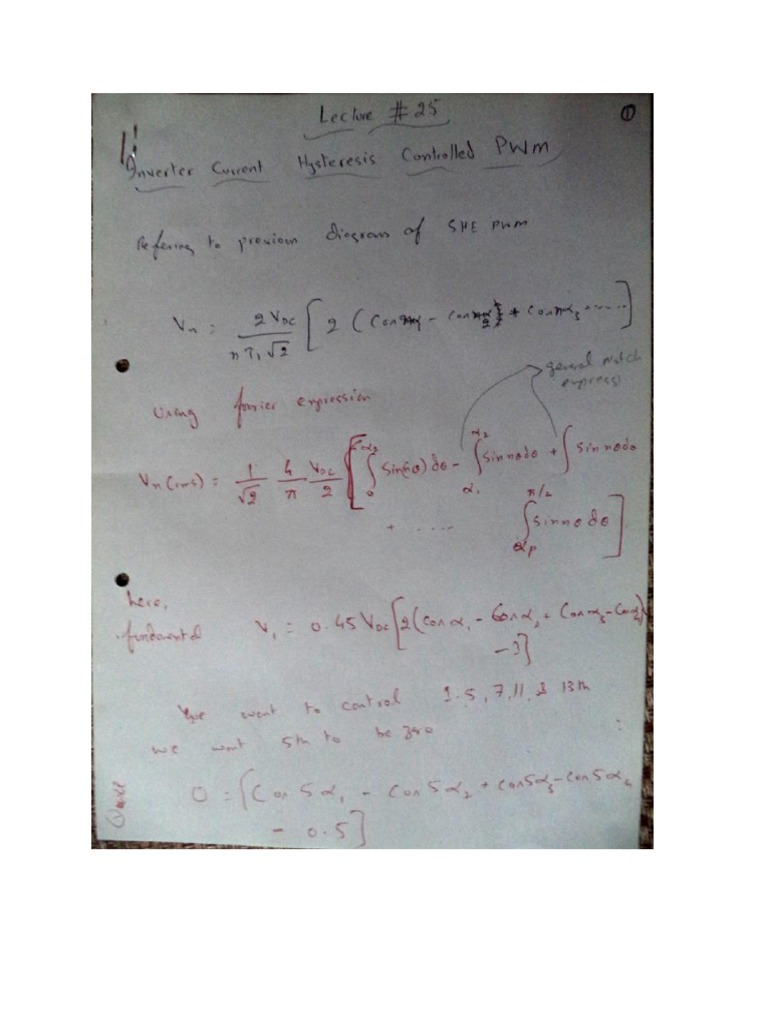 Lecture # 25
①
Inverter Current Hysteresis Controlled PWM
Refering to previous diagram of SHE PWM
Vn = 2 VDC / nπ√2 [ 2 ( Cos nα1 - Cos nα2 ) + Cos nα3 ...... ]
general notch express
Using fourier expression
Vn (rms) = 1/√2 4/π VDC/2 [ ∫0^α2 sin(nθ) dθ - ∫α1^α2 sin nθ dθ + ∫ sin nθ dθ
+ .... ∫αp^π/2 sin nθ dθ ]
here,
fundamental V1 = 0.45 VDC [ 2 ( Cos α1 - Cos α2 + Cos α3 - Cos α4 )
- 1 ]
we want to control 1.5, 7, 11, & 13th
we want 5th to be zero
0 = [ Cos 5α1 - Cos 5α2 + Cos 5α3 - Cos 5α4
- 0.5 ]